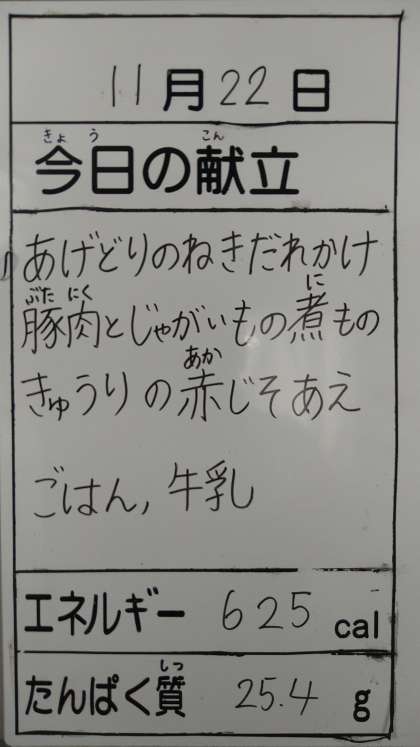 11月22日
今日の献立
あげどりのねぎだれかけ
豚肉とじゃがいもの煮もの
きゅうりの赤じそあえ
ごはん, 牛乳
エネルギー 625 cal
たんぱく質 25.4 g